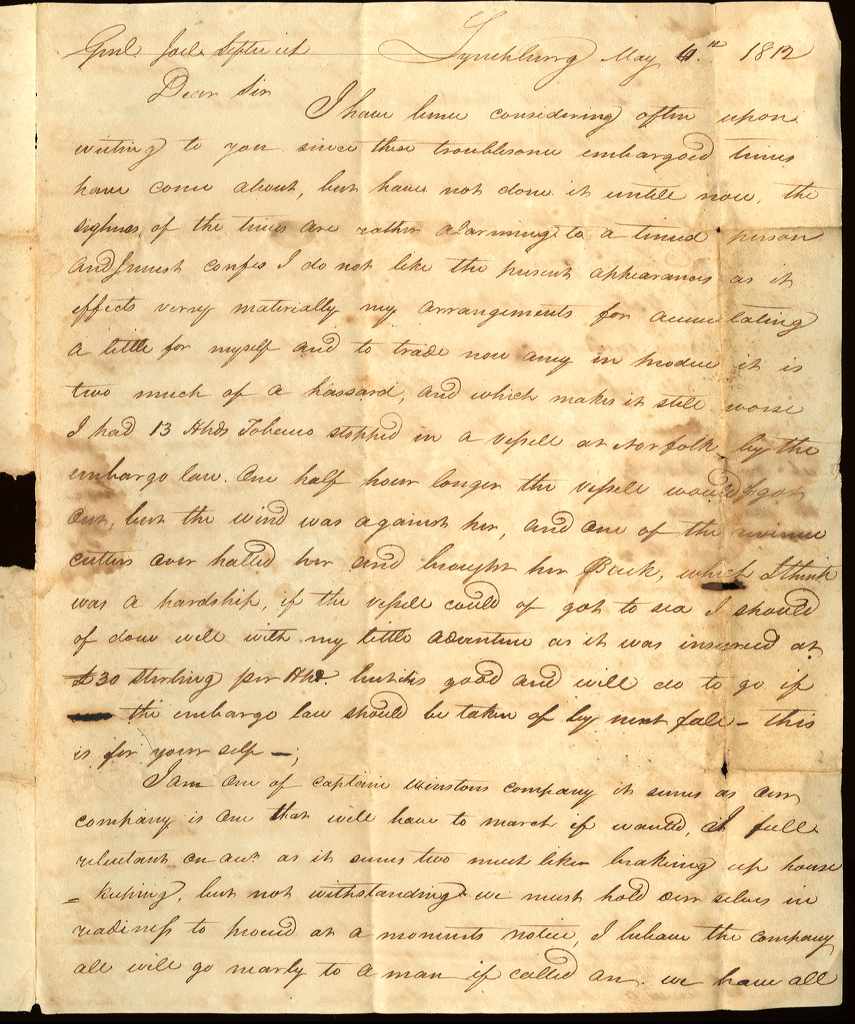 Genl. Joel Leftwich Lynchburg May 6th 1812
Dear Sir
I have bene considering often upon
writing to you since these troublesome embargoed times
have come about, but have not done it untile now, the
sighns of the times are rather alarming to a timed person
and I must confes I do not like the present appearances as it
effects verry materially my arrangements for accumulating
a little for myself and to trade now any in produce it is
two much of a hassard, and which makes it still worse
I had 13 Hhds Tobacco stopped in a vessele at Norfolk by the
embargo law. One half hour longer the vessele would of got
out, but the wind was against her, and one of the revenue
cutters over halled her and brought her Back, which I think
was a hardship, if the vessele could of got to sea I should
of done well with my little adventure as it was insured at
£30 sterling per Hhd. but its good and will do to go if
the embargo law should be taken of by next fall – this
is for your self –;
I am one of captain Winstons company it semes as our
company is one that will have to march if wanted, I feel
reluctant on acct. as it semes two much like braking up house
= keeping, but not withstanding we must hold our selves in
readiness to proceed at a moments notice, I beleave the company
all will go nearly to a man if called on. we have all